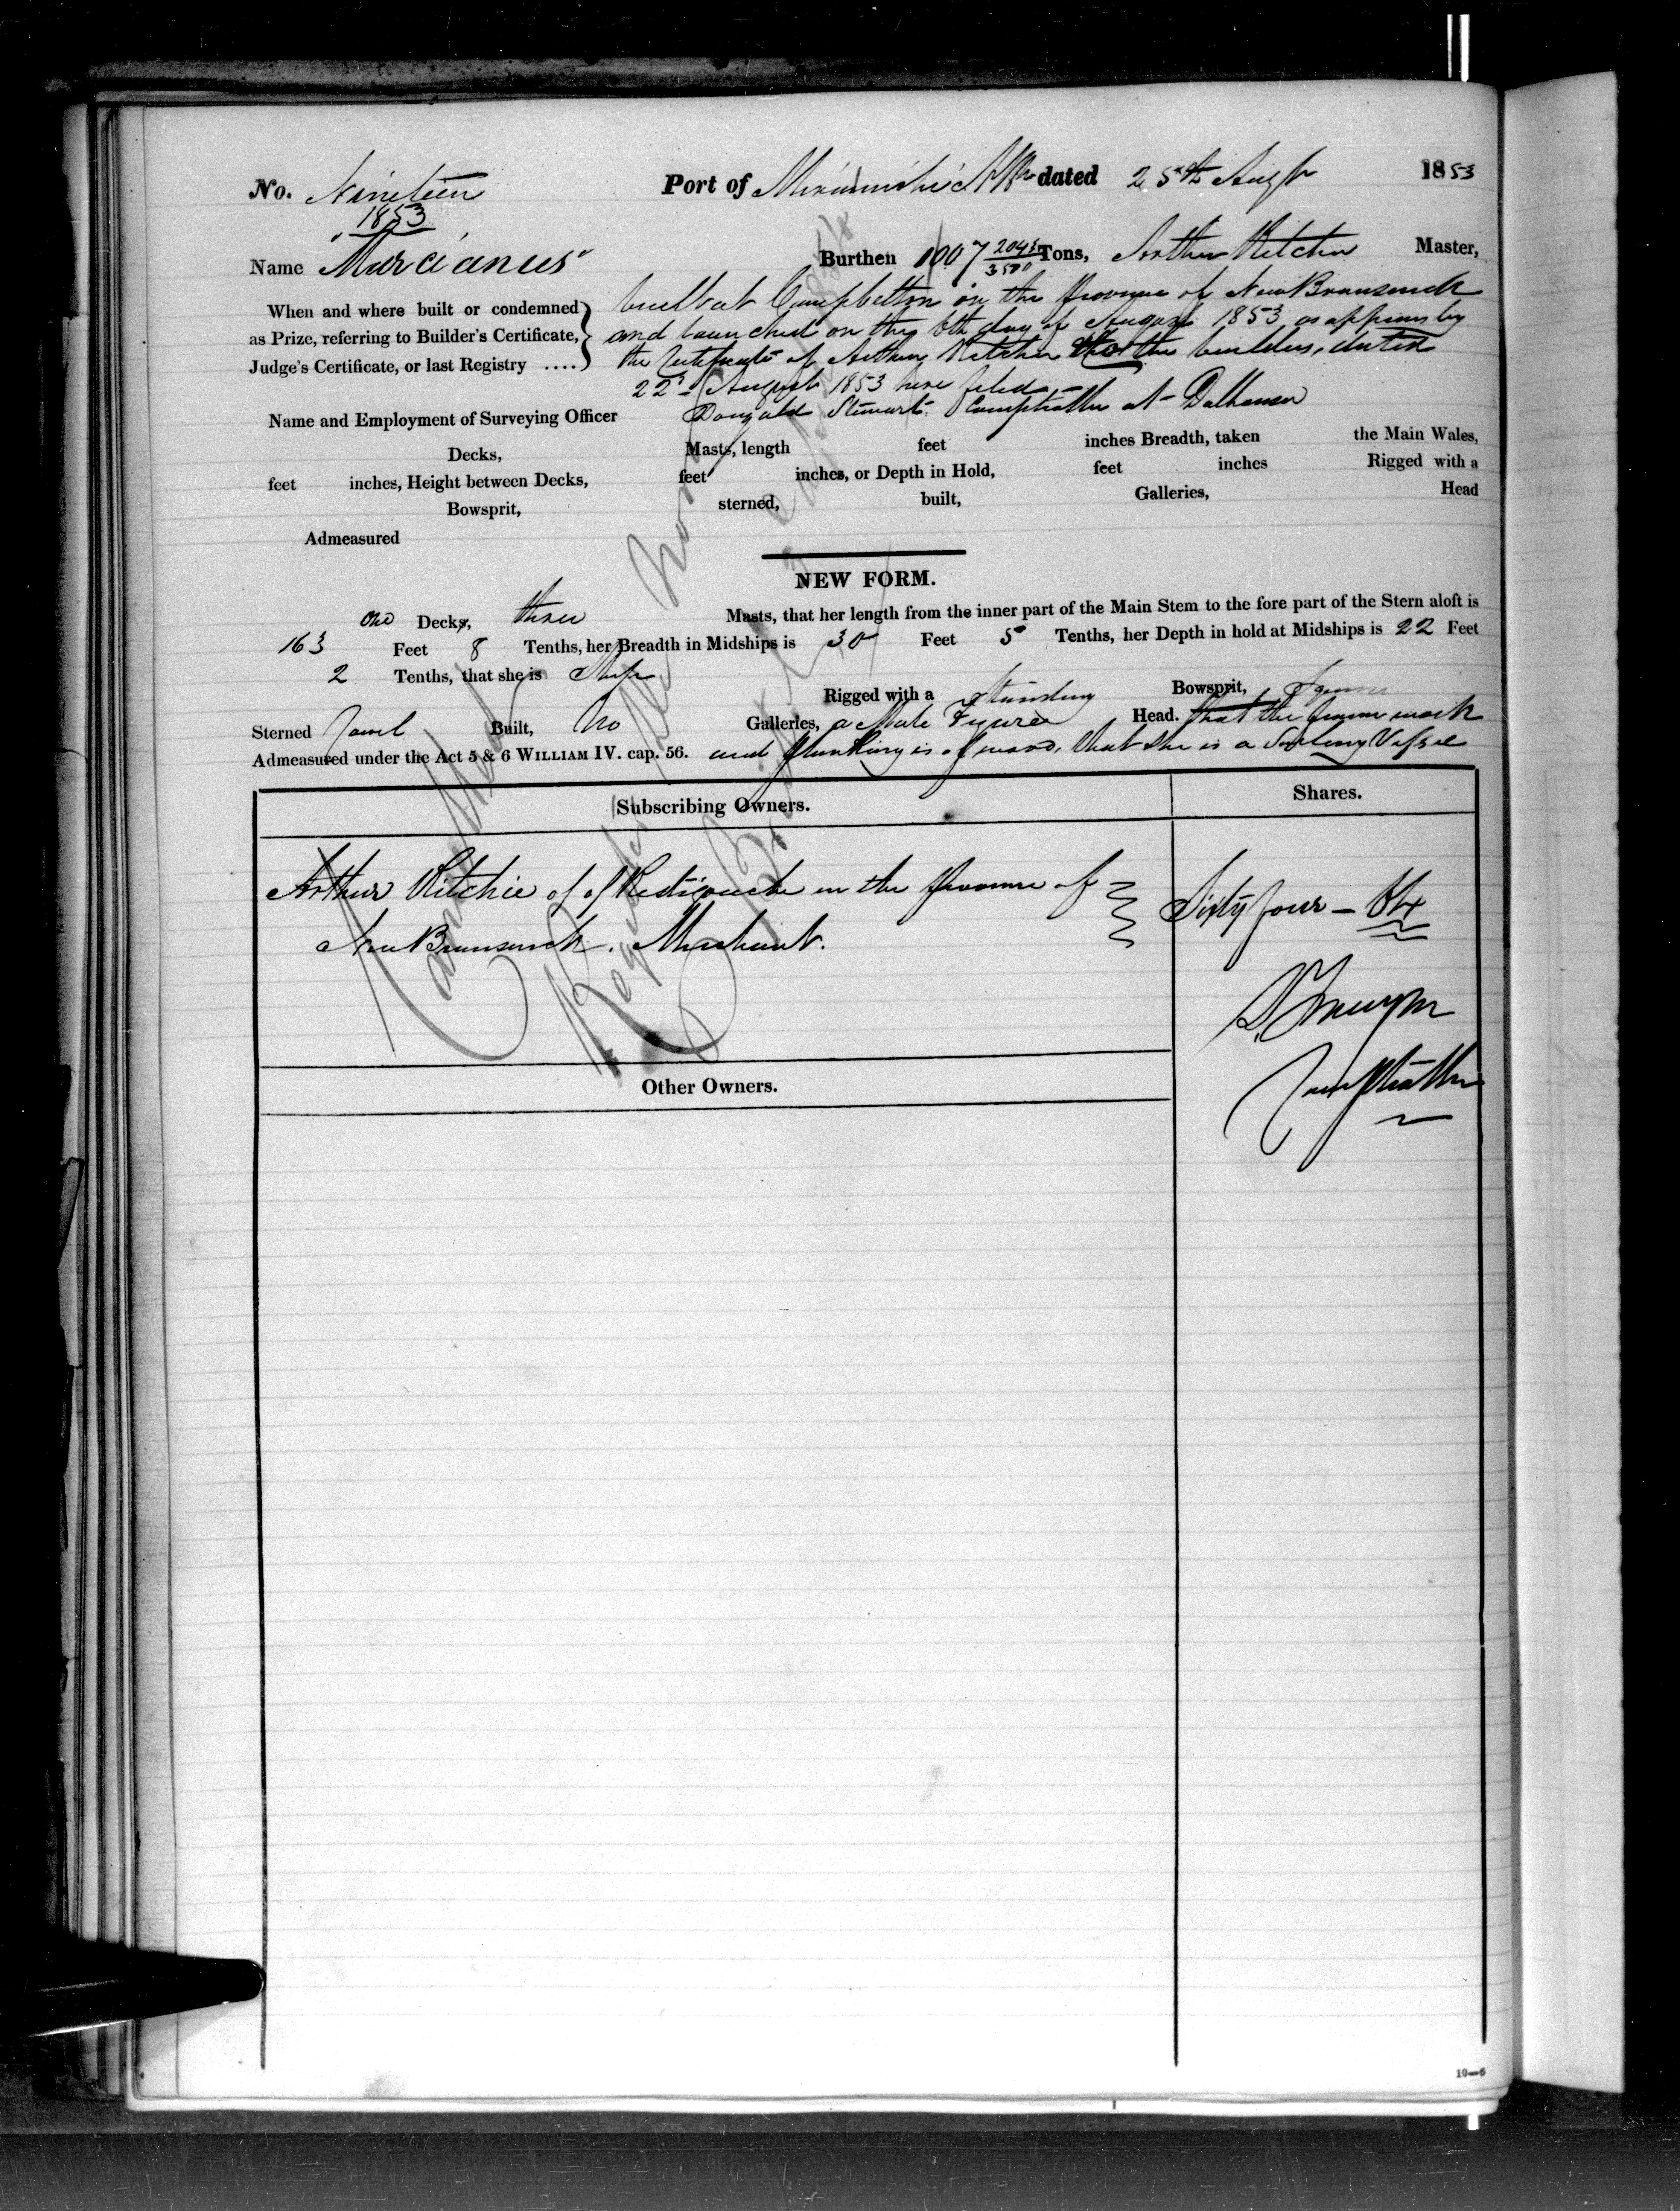 No. Nineteen Port of Miramichi NB dated 25th Augt 1853
1853
Name "Marcianus" Burthen 1007 2043/3500 Tons, Arthur Ritchie Master,
When and where built or condemned
as Prize, referring to Builder's Certificate,
Judge's Certificate, or last Registry ....
built at Campbellton in the Province of New Brunswick
and launched on the 6th day of August 1853 as appears by
the Certificate of Arthur Ritchie the builder, dated
22d August 1853 here filed
Name and Employment of Surveying Officer Dougald Stewart Comptroller at Dalhousie
Decks, Masts, length feet inches Breadth, taken the Main Wales,
feet inches, Height between Decks, feet inches, or Depth in Hold, feet inches Rigged with a
Bowsprit, sterned, built, Galleries, Head
Admeasured
NEW FORM.
One Decks, three Masts, that her length from the inner part of the Main Stem to the fore part of the Stern aloft is
163 Feet 8 Tenths, her Breadth in Midships is 30 Feet 5 Tenths, her Depth in hold at Midships is 22 Feet
2 Tenths, that she is Ship Rigged with a Standing Bowsprit, Square
Sterned Carvel Built, No Galleries, a Male Figure Head. that the frame work
Admeasured under the Act 5 & 6 WILLIAM IV. cap. 56. and planking is of wood, that she is a Sailing Vessel
Subscribing Owners. Shares.
Arthur Ritchie of of Restigouche in the Province of
New Brunswick. Merchant.
Sixty four - 64
Comptroller
Other Owners.
Registered
10—6